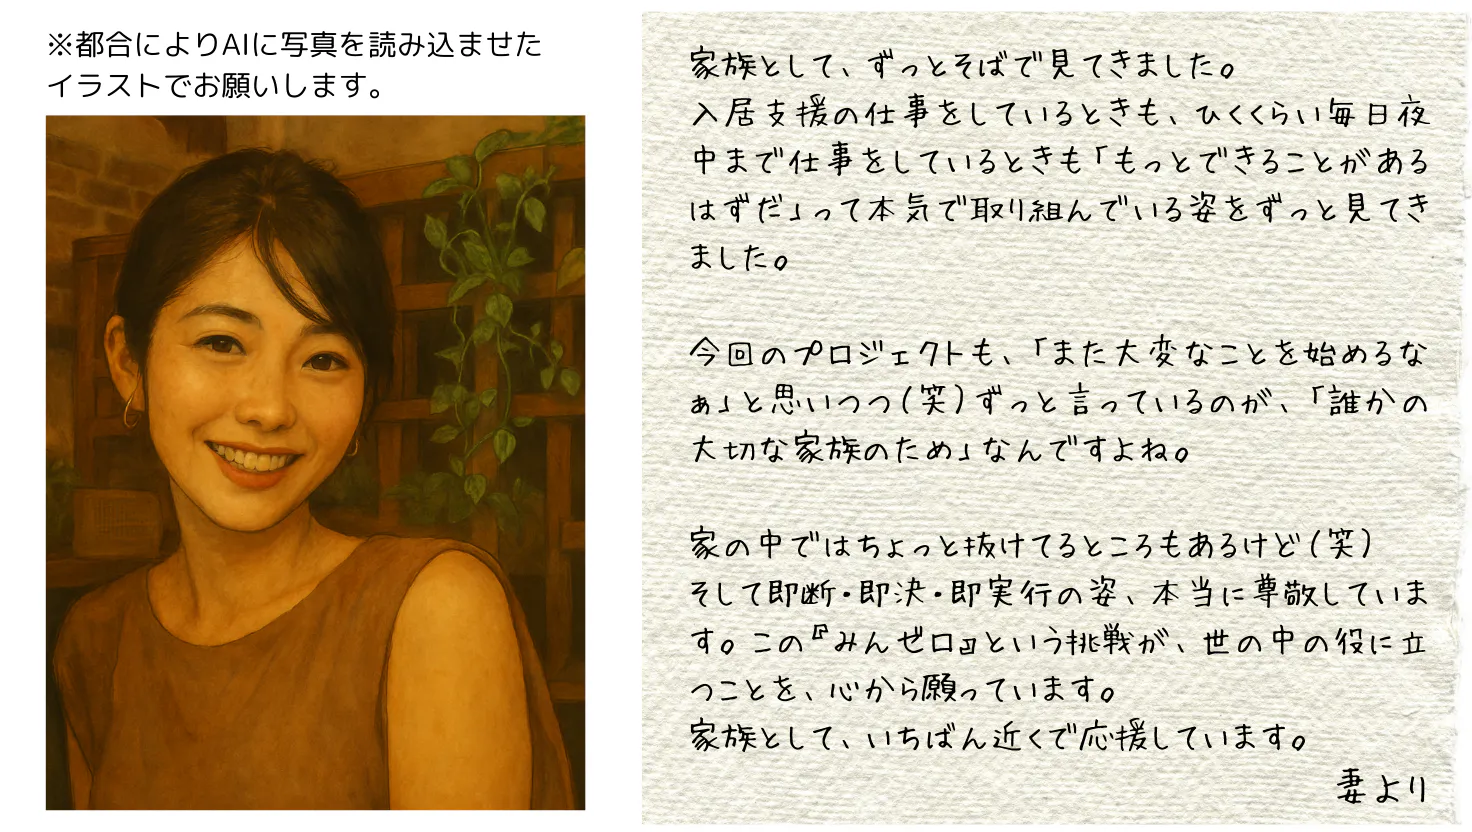 ※都合によりAIに写真を読み込ませた
イラストでお願いします。
家族として、ずっとそばで見てきました。
入居支援の仕事をしているときも、ひくくらい毎日夜
中まで仕事をしているときも「もっとできることがある
はずだ」って本気で取り組んでいる姿をずっと見てき
ました。
今回のプロジェクトも、「また大変なことを始めるな
ぁ」と思いつつ(笑)ずっと言っているのが、「誰かの
大切な家族のため」なんですよね。
家の中ではちょっと抜けてるところもあるけど(笑)
そして即断・即決・即実行の姿、本当に尊敬していま
す。この『みんゼロ』という挑戦が、世の中の役に立
つことを、心から願っています。
家族として、いちばん近くで応援しています。
妻より